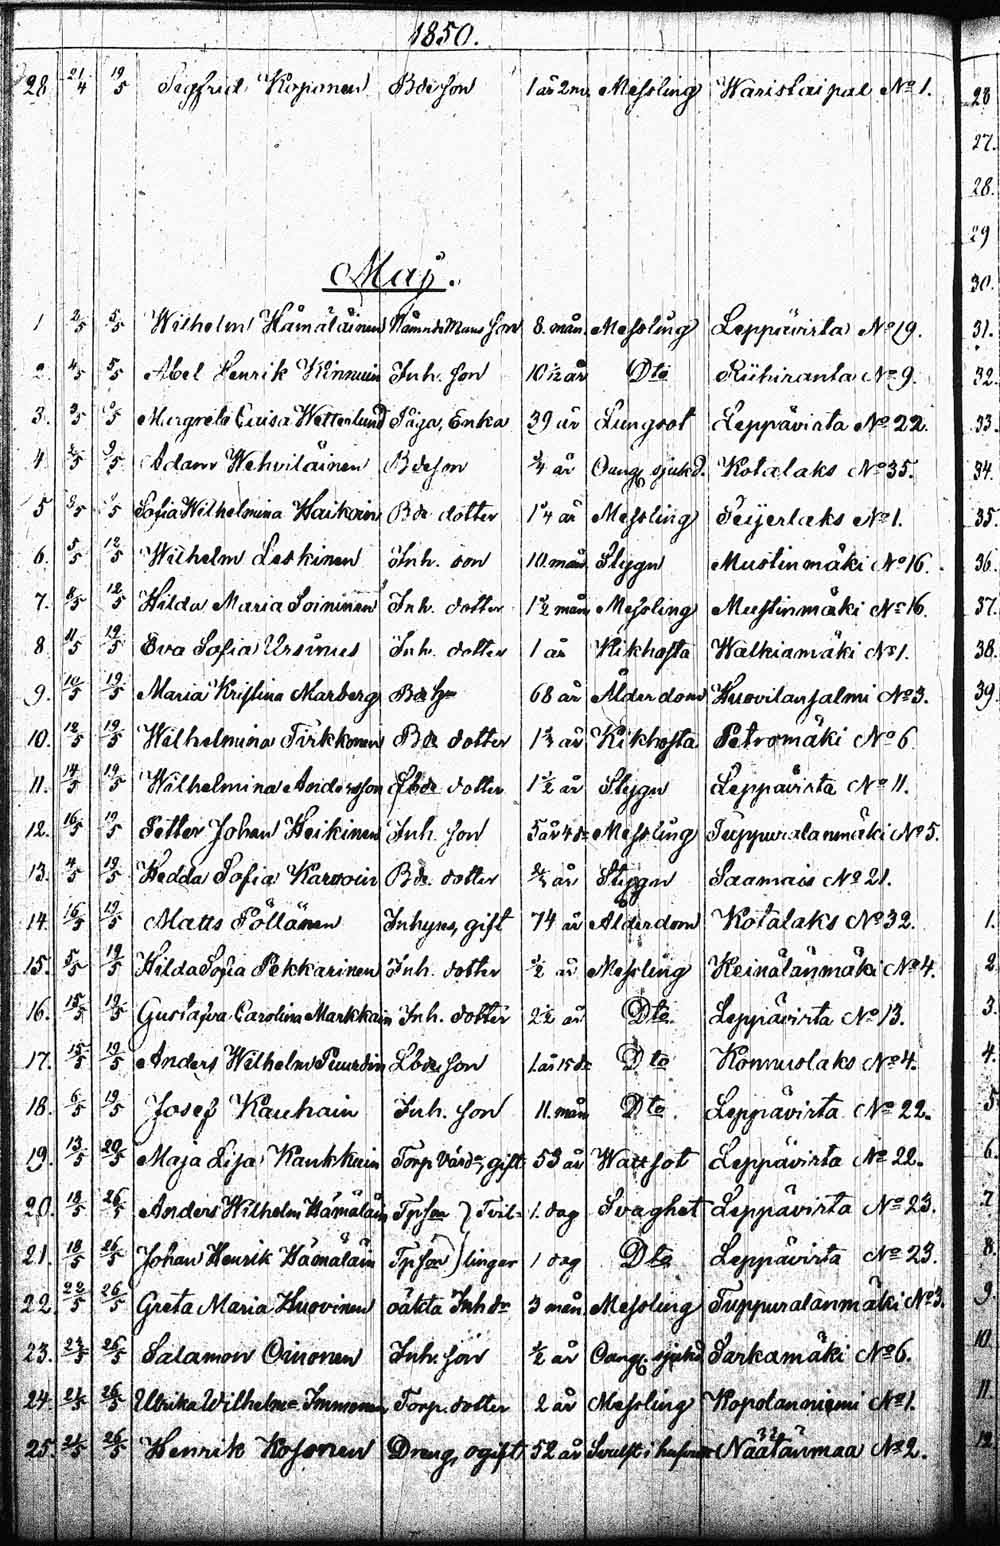 1850.
28 21/4 19/5 Segfrid Koponen Bdeson 1 år 2 m. Messling Waristaipal No 1.
Maj.
1 2/5 5/5 Wilhelm Hämäläinen Nämndemans son 8. mån. Messling Leppävirta No 19.
2. 4/5 5/5 Abel Henrik Kinnuin Inh. son 10 1/2 år Dto Riihiranta No 9.
3. 3/5 /5 Margreta Caisa Wetterlund Piga, Enka 39 år Lungsot Leppävirta No 22.
4 /5 9/5 Adam Wehviläinen Bdeson 3/4 år Oang. sjukd. Kotalaks No 35.
5 8/5 /5 Sofia Wilhelmina Haikoin Bde dotter 1 1/4 år Messling Teijerlaks No 1.
6. 5/5 12/5 Wilhelm Leskinen Inh. son 10. mån. Slygn Mustinmäki No 16.
7. 8/5 12/5 Hilda Maria Soininen Inh. dotter 1 1/2 mån Messling Mustinmäki No 16
8 11/5 19/5 Eva Sofia Ursinus Inh. dotter 1 år Kikhosta Walkiamäki No 1.
9. 10/5 19/5 Maria Kristina Marberg Bde 68 år Ålderdom Huovilansalmi No 3.
10. 12/5 19/5 Wilhelmina Tirkkonen Bde dotter 1 år Kikhosta Petromäki No 6
11. 14/5 19/5 Wilhelmina Andersson dotter 1 1/2 år Slygn Leppävirta No 11.
12. 16/5 19/5 Petter Johan Heikinen Inh. son 5 år 4 d Messling Tuppuralanmäki No 5.
13. 4/5 19/5 Hedda Sofia Karvoin Bde. dotter år Slygn Saamais No 21.
14. 16/5 19/5 Matts Pöllänen Inhyses, gift 74 år Ålderdom Kotalaks No 32.
15. 5/5 19/5 Hilda Sofia Pekkarinen Inh. dotter 1/2 år Messling Heinälänmäki No 4.
16. 15/5 19/5 Gustafva Carolina Markkain Inh. dotter 2 1/2 år Dto. Leppävirta No 13.
17. 15/5 19/5 Anders Wilhelm Puurdin Lbdeson 1 år 15 d Dto Konnuslaks No 4.
18. 6/5 19/5 Josef Kauhain Inh. son 11. mån Dto. Leppävirta No 22.
19. 13/5 20/5 Maja Lisa Kaukkuin Torp. Värd:a, gift 53 år Wattsot Leppävirta No 22.
20. 18/5 26/5 Anders Wilhelm Hämäläin Tpson } Tvil- 1. dag Svaghet Leppävirta No 23.
21. 18/5 26/5 Johan Henrik Hämäläin Tpson } lingar 1 dag Dto Leppävirta No 23.
22 22/5 26/5 Greta Maria Huovinen oäkta Inh dr 3 mån. Messling Tuppuralanmäki No 3.
23. 23/5 26/5 Salamon Oinonen Inh. son 1/2 år Oang. sjukd Sarkamäki No 6.
24. 21/5 26/5 Ulrika Wilhelma Immonen Torp. dotter 2 år Messling Kopolanniemi No 1.
25. 21/5 26/5 Henrik Kosonen Dreng, ogift 52 år Svulst i Näätänmaa No 2.